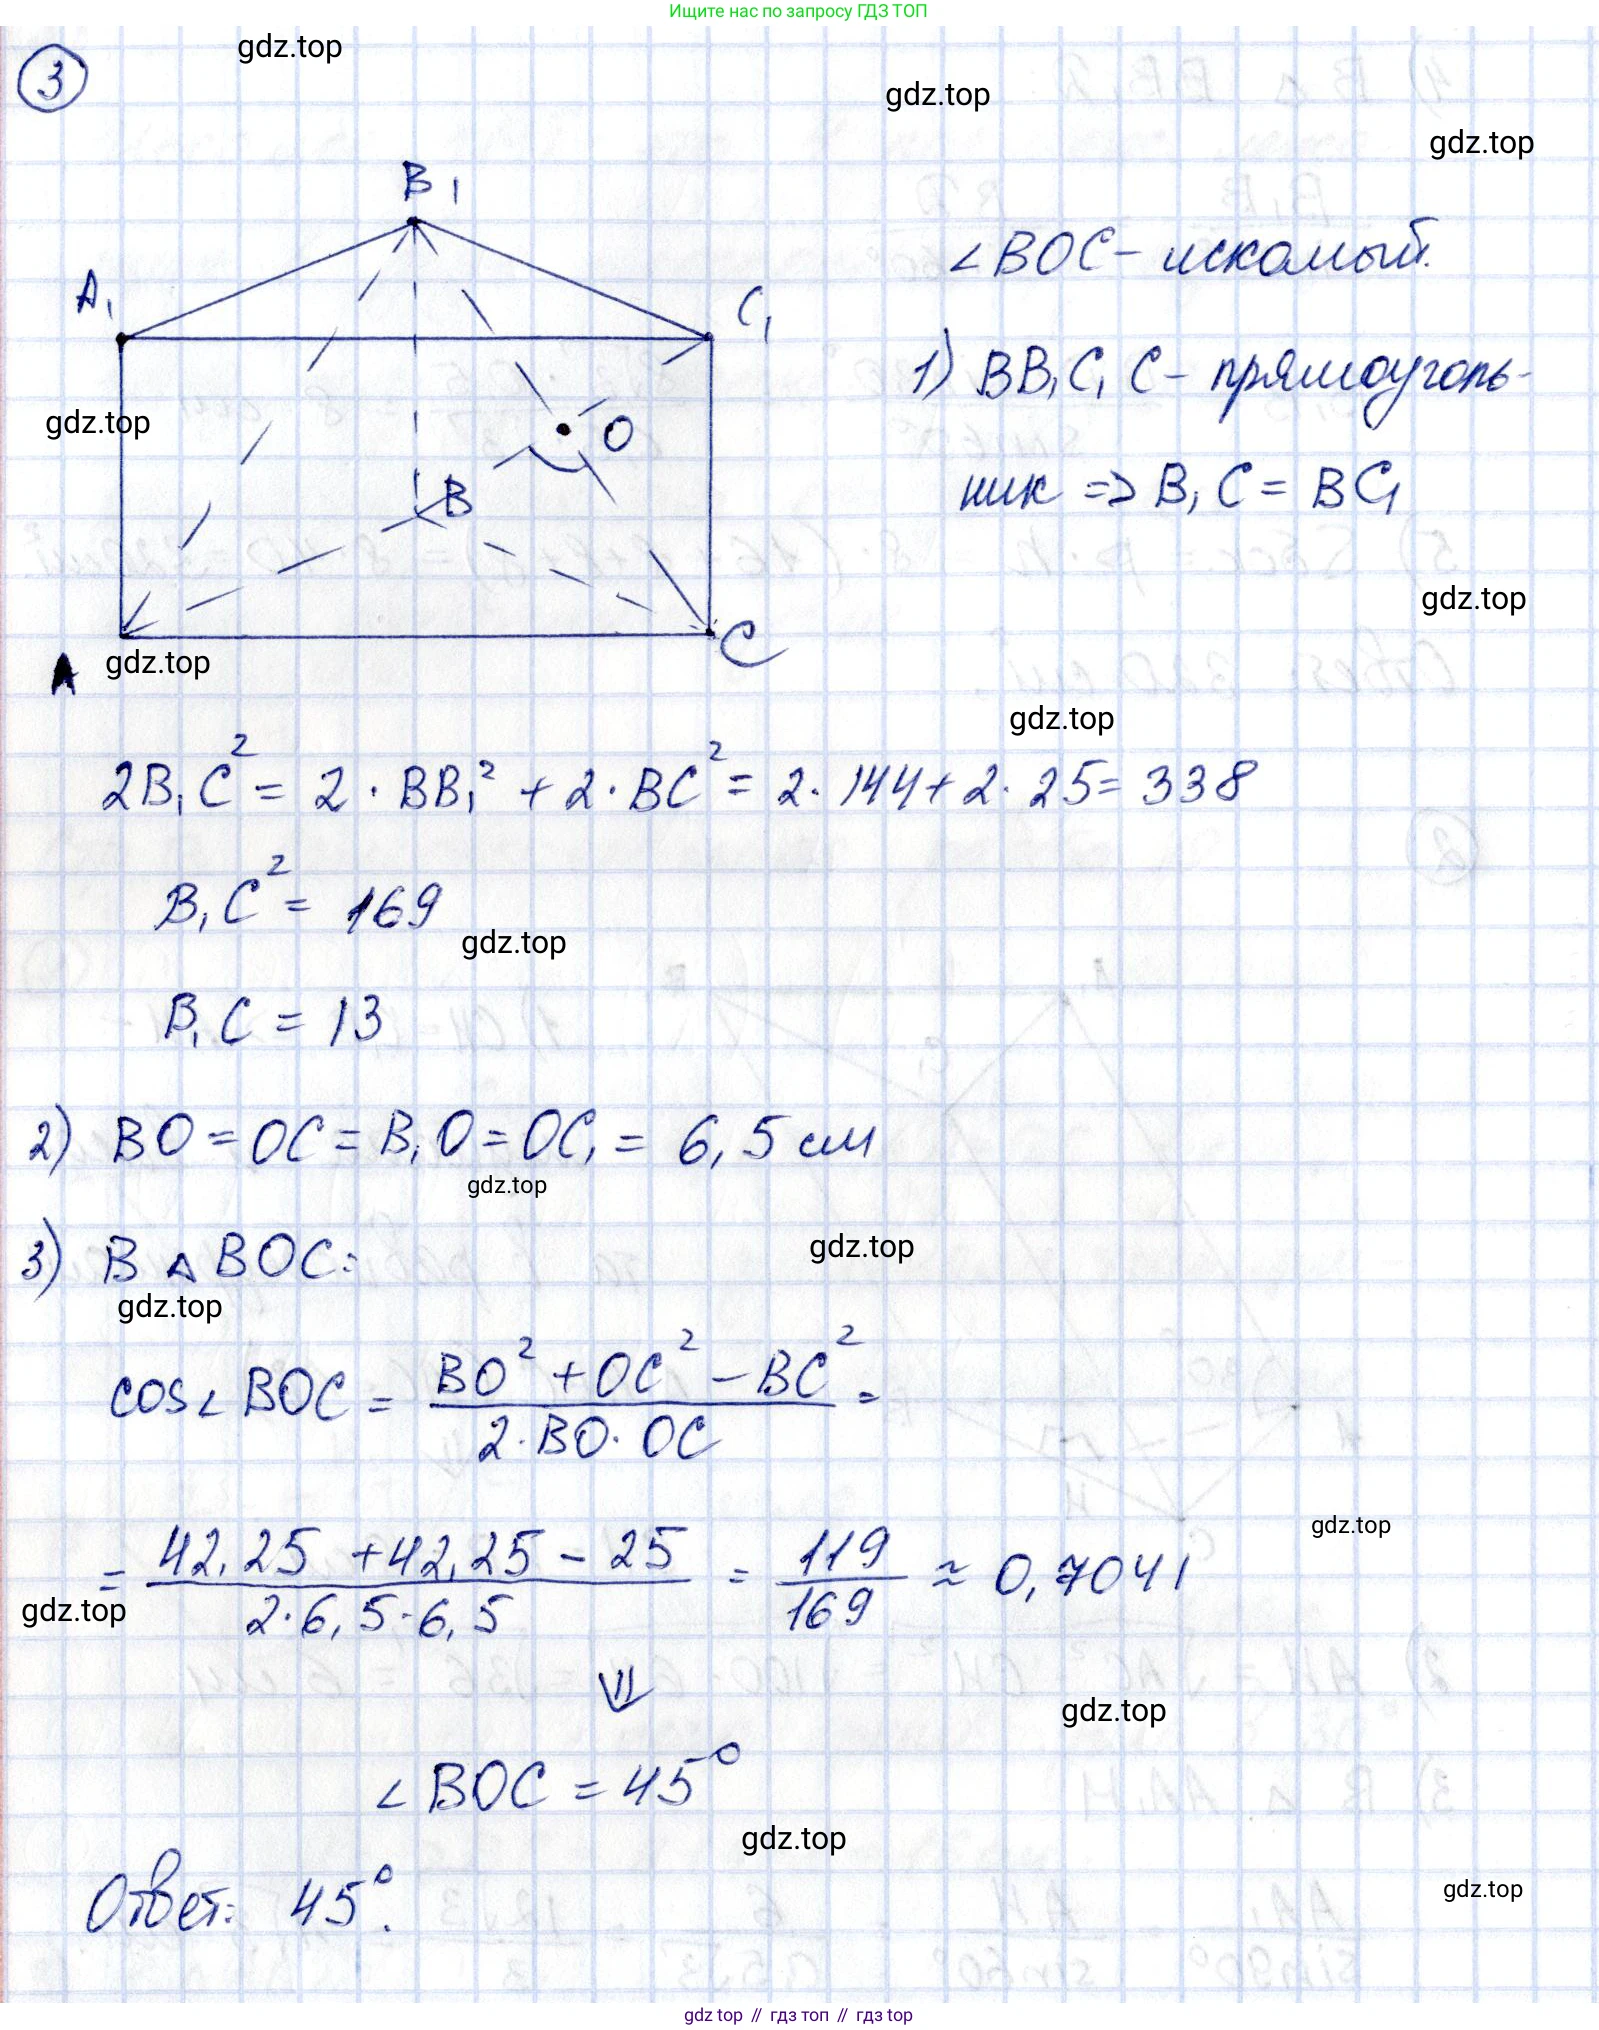 Ищите нас по запросу ГДЗ ТОП
3
gdz.top
gdz.top
gdz.top
B₁
A₁
C₁
∠BOC - искомый.
1) BB₁C₁C - прямоуголь-
gdz.top
O
B
ник => B₁C = BC₁
gdz.top
A
gdz.top
C
gdz.top
2B₁C² = 2 · BB₁² + 2 · BC² = 2 · 144 + 2 · 25 = 338
B₁C² = 169
gdz.top
B₁C = 13
2) BO = OC = B₁O = OC₁ = 6,5 см
gdz.top
3) В △ BOC:
gdz.top
gdz.top
cos∠BOC = (BO² + OC² - BC²)/(2·BO·OC) =
gdz.top
= (42,25 + 42,25 - 25)/(2·6,5·6,5) = 119/169 ≈ 0,7041
gdz.top
⇓
gdz.top
∠BOC = 45°
gdz.top
Ответ: 45°.
gdz.top
gdz top // гдз топ // гдз top